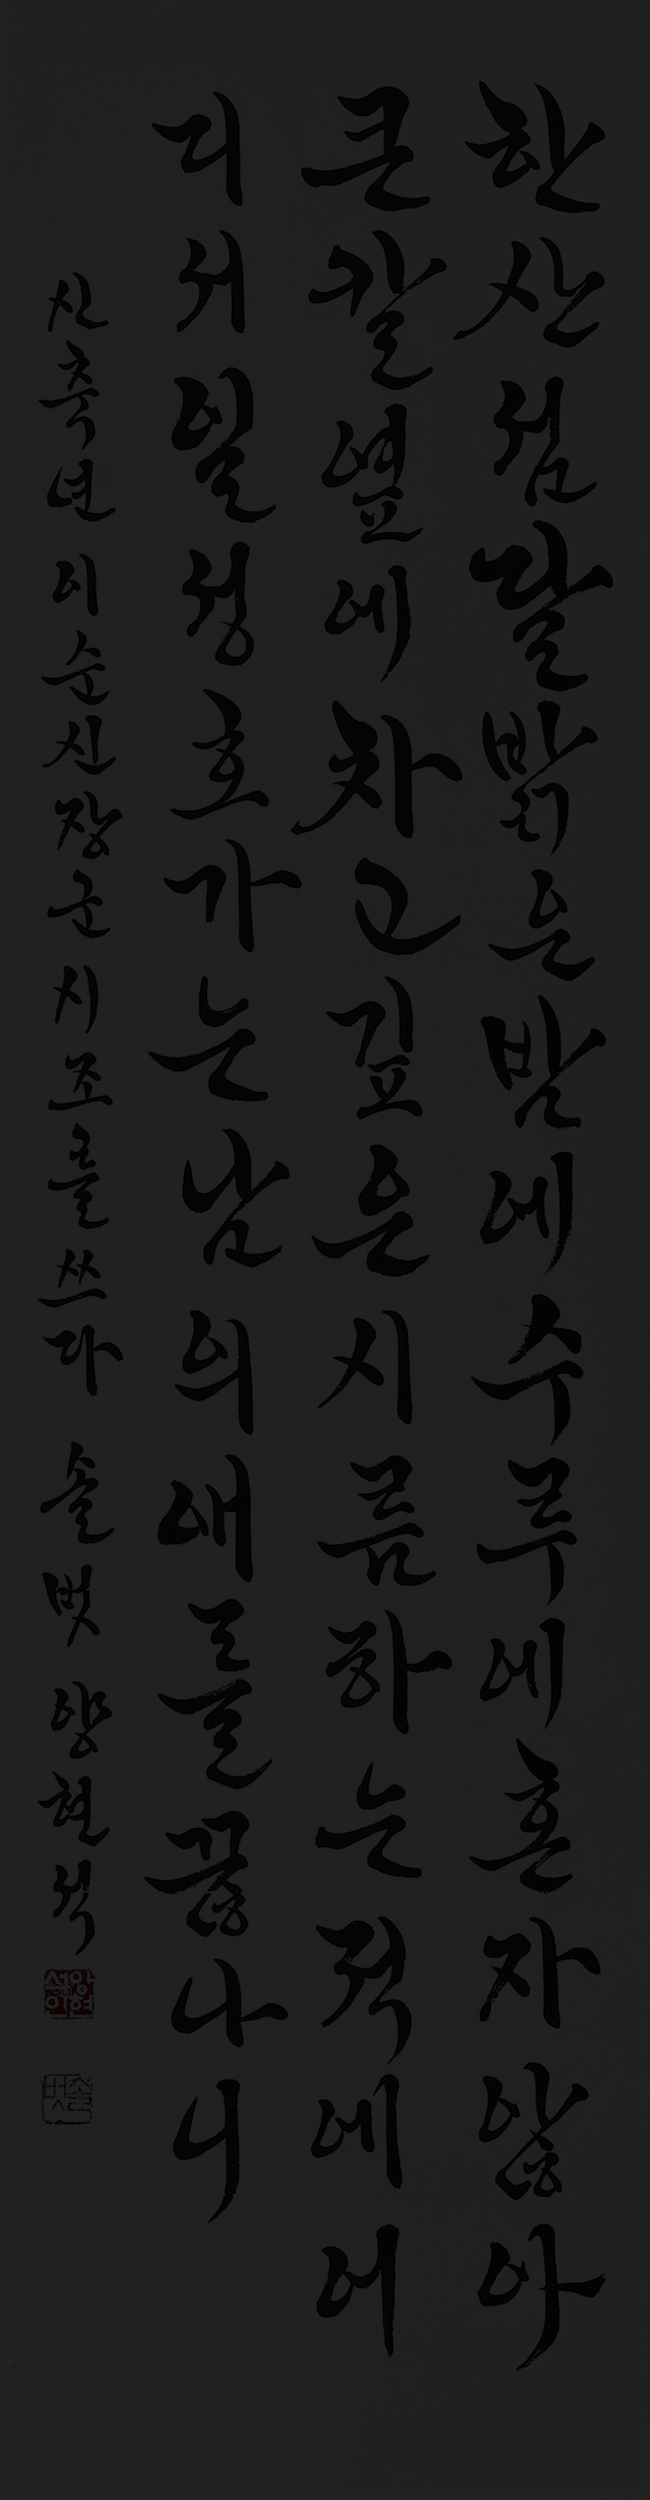 한산섬달밝은밤에수루에혼자앉아
큰칼옆에차고깊은시름하는적에어
디서일성호가는남의애를끊나니
신축년이순신장군시조를쓰다 솔벗